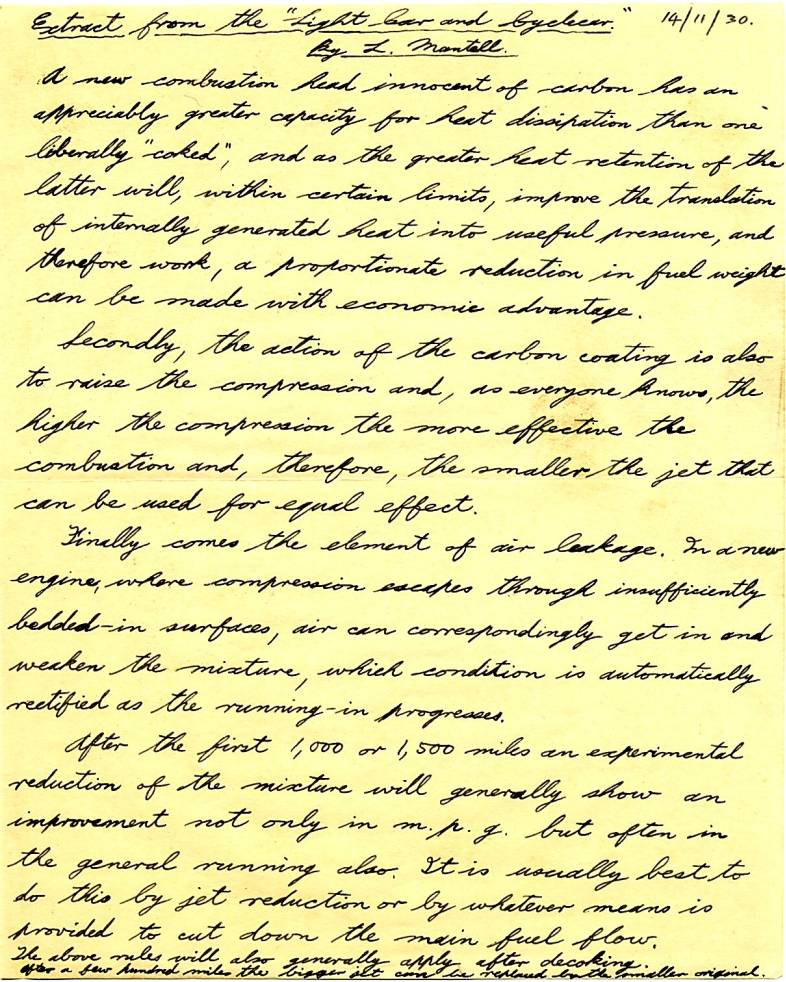 Extract from the "Light Car and Cyclecar." 14/11/30.
By L. Mantell.
A new combustion head innocent of carbon has an
appreciably greater capacity for heat dissipation than one
liberally "coked", and as the greater heat retention of the
latter will, within certain limits, improve the translation
of internally generated heat into useful pressure, and
therefore work, a proportionate reduction in fuel weight
can be made with economic advantage.
Secondly, the action of the carbon coating is also
to raise the compression and, as everyone knows, the
higher the compression the more effective the
combustion and, therefore, the smaller the jet that
can be used for equal effect.
Finally comes the element of air leakage. In a new
engine, where compression escapes through insufficiently
bedded-in surfaces, air can correspondingly get in and
weaken the mixture, which condition is automatically
rectified as the running-in progresses.
After the first 1,000 or 1,500 miles an experimental
reduction of the mixture will generally show an
improvement not only in m.p.g. but often in
the general running also. It is usually best to
do this by jet reduction or by whatever means is
provided to cut down the main fuel flow.
The above rules will also generally apply after decorking.
After a few hundred miles the bigger jet can be replaced by the smaller original.